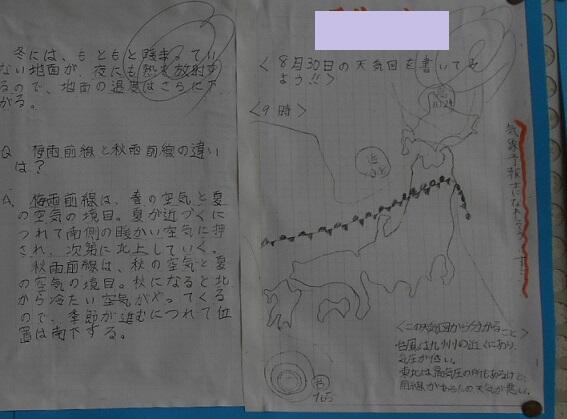 冬には、もともと強まってい
ない地面が、夜にも熱を放射す
るので、地面の温度はさらに下
がる。
Q 梅雨前線と秋雨前線の違い
は?
A. 梅雨前線は、春の空気と夏
の空気の境目。夏が近づくにつ
れて南側の暖かい空気に押
され、次第に北上していく。
秋雨前線は、秋の空気と夏
の空気の境目。秋になると北
から冷たい空気がやってくる
ので、季節が進むにつれて位
置は南下する。
<8月30日の天気図を書いてみ
よう!!>
<9時>
気象予報士になれそう
<この天気図から分かること>
台風は九州の近くにあり、
気圧が低い。
東北は高気圧の
前線があるので天気が悪い。